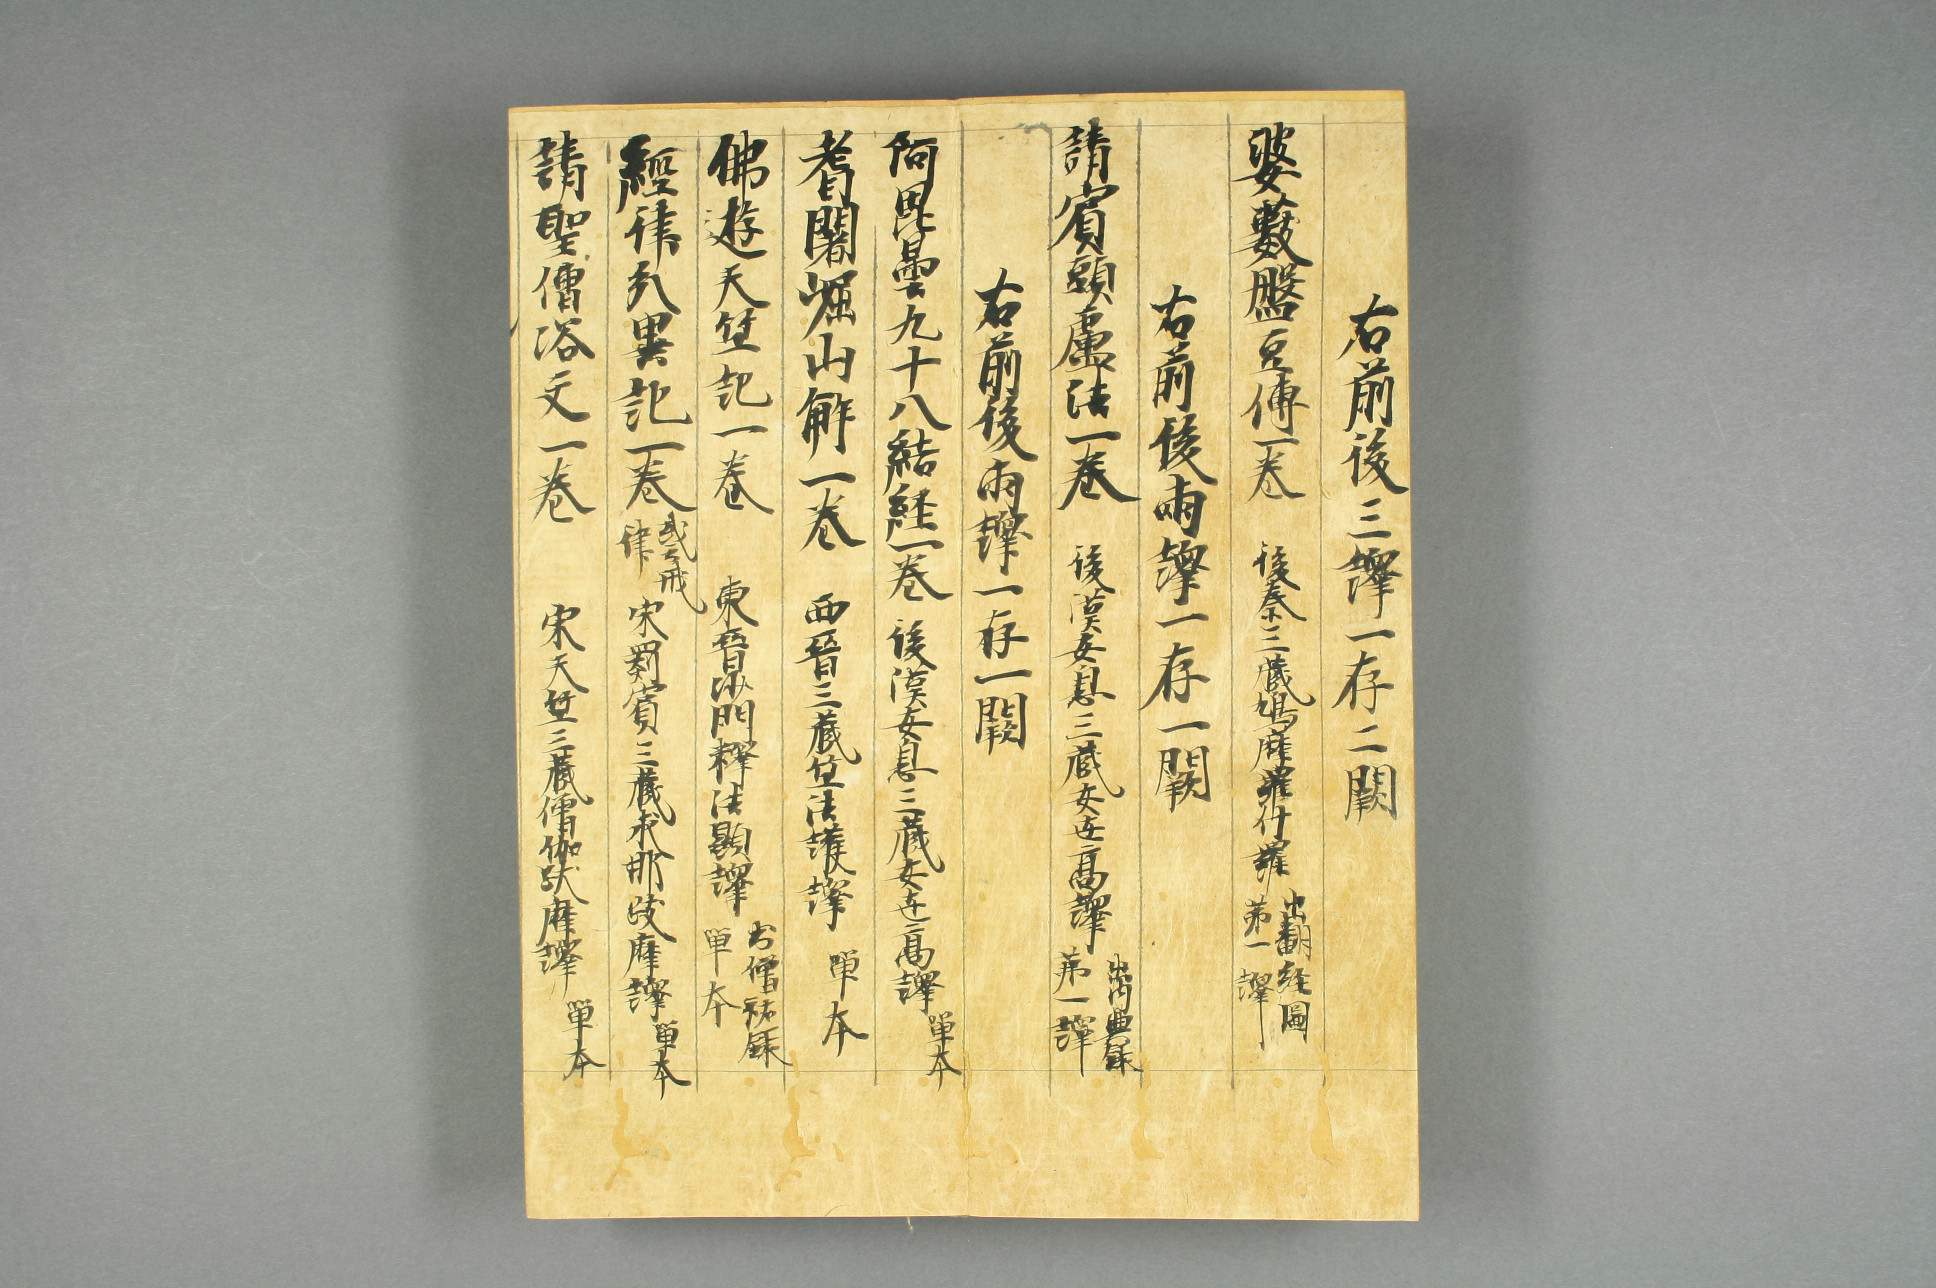 右前後三譯一存二闕
婆藪盤豆傳一卷 後秦三藏鳩摩羅什譯 出翻経圖 第一譯
右前後兩譯一存一闕
請賓頭盧法一卷 後漢安息三藏安世高譯 出內典録 第一譯
右前後兩譯一存一闕
阿毗曇九十八結経一卷 後漢安息三藏安世高譯 單本
耆闍崛山解一卷 西晉三藏竺法護譯 單本
佛遊天竺記一卷 東晉沙門釋法顯譯 出僧祐録 單本
經律分異記一卷 或云戒律 宋罽賓三藏求那跋摩譯 單本
請聖僧浴文一卷 宋天竺三藏僧伽跋摩譯 單本